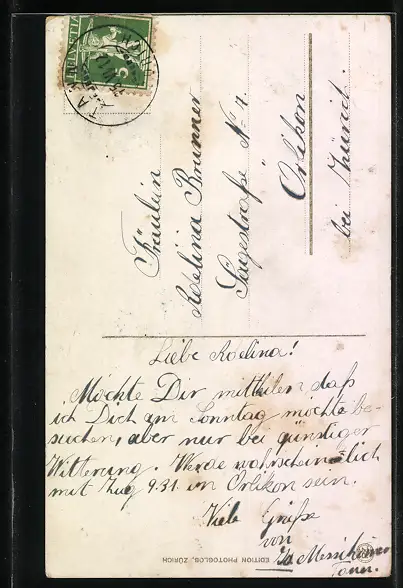 HELVETIA
5
Fräulein
Adelina Brunner
Sagestraße No 4.
Örlikon
bei Zürich.
Liebe Adelina!
Möchte Dir mittheilen, daß
ich Dich am Sonntag möchte be-
suchen, aber nur bei günstiger
Witterung. Werde wahrscheinlich
mit Zug 9.31 in Örlikon sein.
Viele Grüße
von
EDITION PHOTOGLOB, ZÜRICH